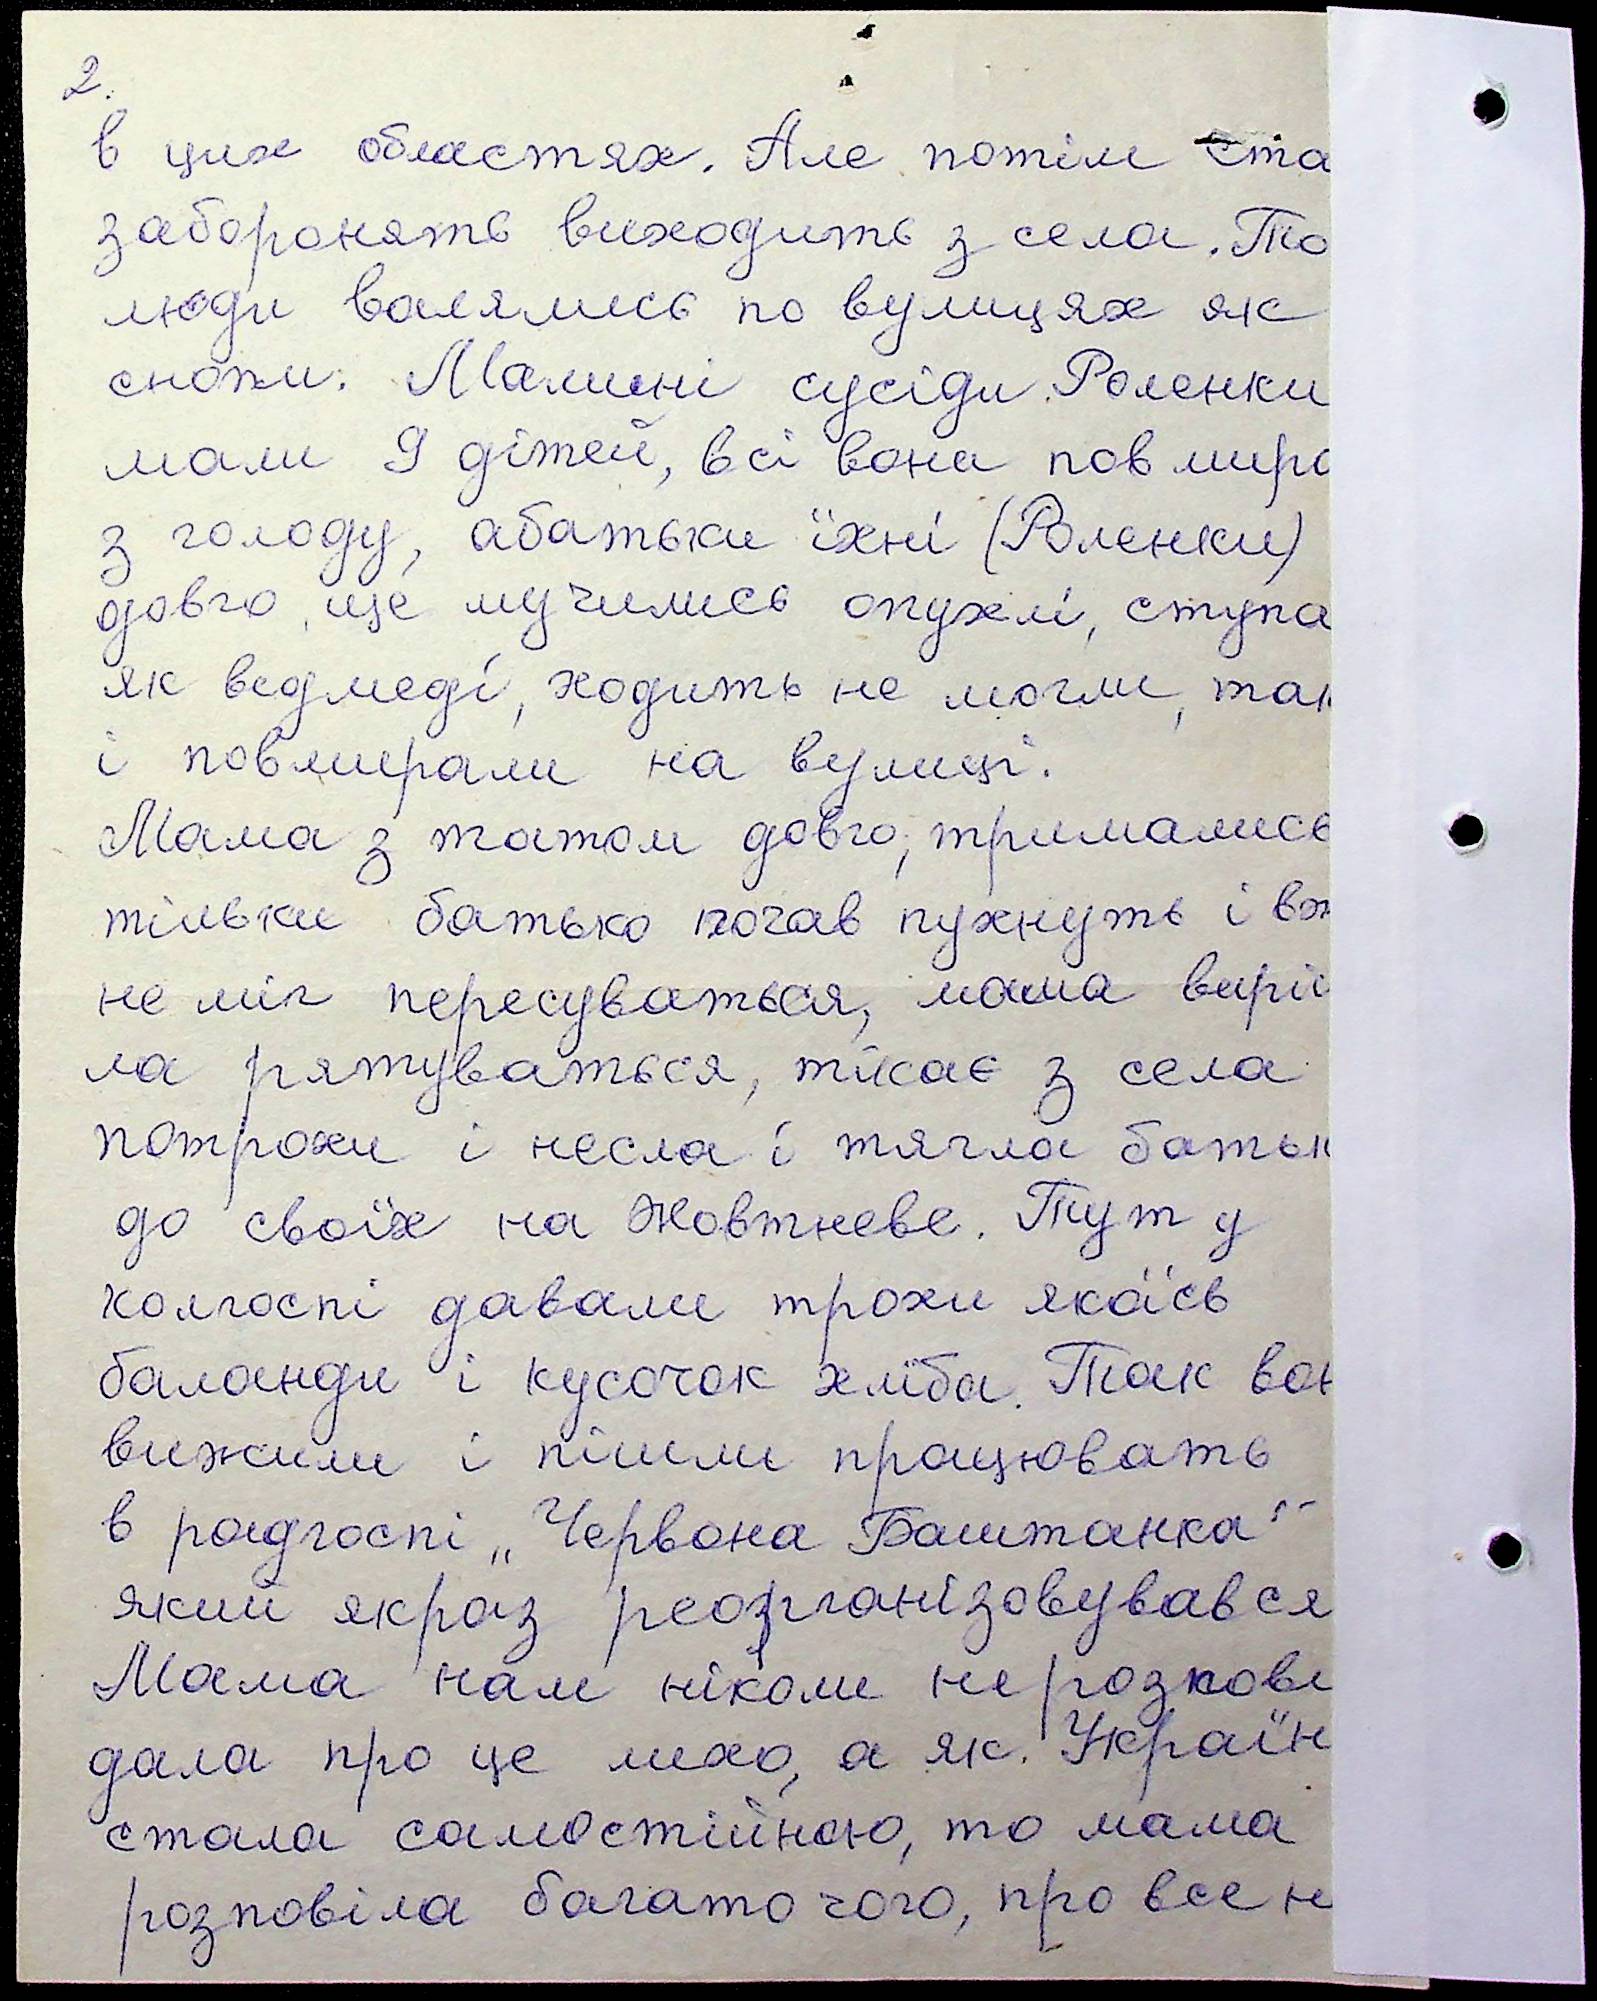 2.
в цих областях. Але потім ста
заборонять виходить з села. То
люди валялись по вулицях як
снопи. Мамині сусіди Роленки
мали 9 дітей, всі вони повмира
з голоду, абатьки їхні (Роленки)
довго ще мучились опухлі, ступа
як ведмеді, ходить не могли, так
і повмирали на вулиці.
Мама з татом довго, тримались
тільки батько почав пухнуть і вж
не міг пересуваться, мама виріш
ла рятуваться, тікає з села
потрохи і несла і тягла батьк
до своїх на Жовтневе. Тут у
колгоспі давали трохи якоїсь
баланди і кусочок хліба. Так вон
вижили і пішли працювать
в радгоспі „Червона Баштанка"
який якраз реорганізовувався
Мама нам ніколи не розпові
дала про це лихо, а як Україн
стала самостійною, то мама
розповіла багато чого, про все н